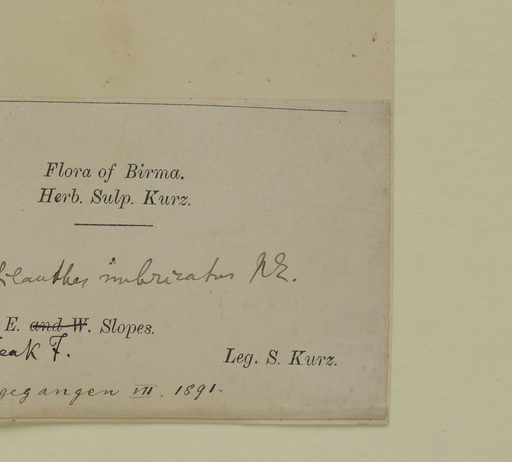 Flora of Birma.
Herb. Sulp. Kurz.
imbricatus NE.
E. and W. Slopes.
eak F.
Leg. S. Kurz.
gegangen VII. 1891.